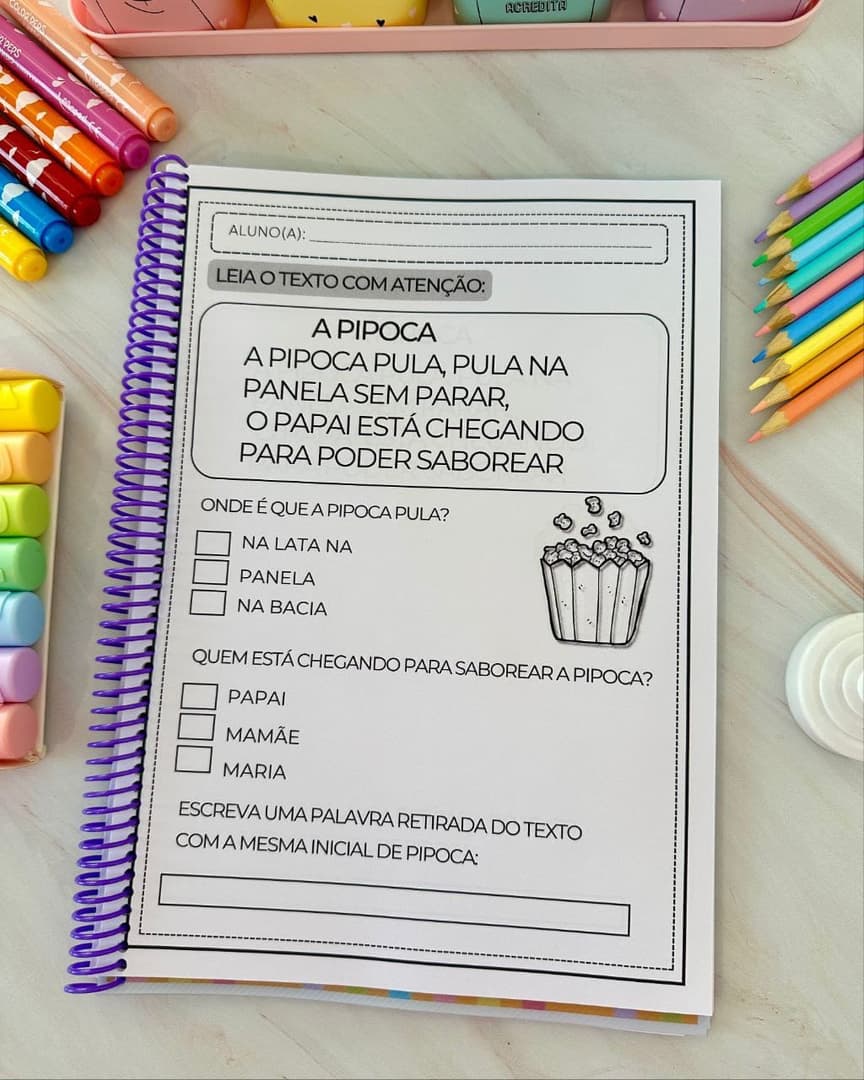 COLOR PEPS
COLOR'PEPS
ACREDITA
ALUNO(A):
LEIA O TEXTO COM ATENÇÃO:
A PIPOCA
A PIPOCA PULA, PULA NA
PANELA SEM PARAR,
O PAPAI ESTÁ CHEGANDO
PARA PODER SABOREAR
ONDE É QUE A PIPOCA PULA?
NA LATA NA
PANELA
NA BACIA
QUEM ESTÁ CHEGANDO PARA SABOREAR A PIPOCA?
PAPAI
MAMÃE
MARIA
ESCREVA UMA PALAVRA RETIRADA DO TEXTO
COM A MESMA INICIAL DE PIPOCA: